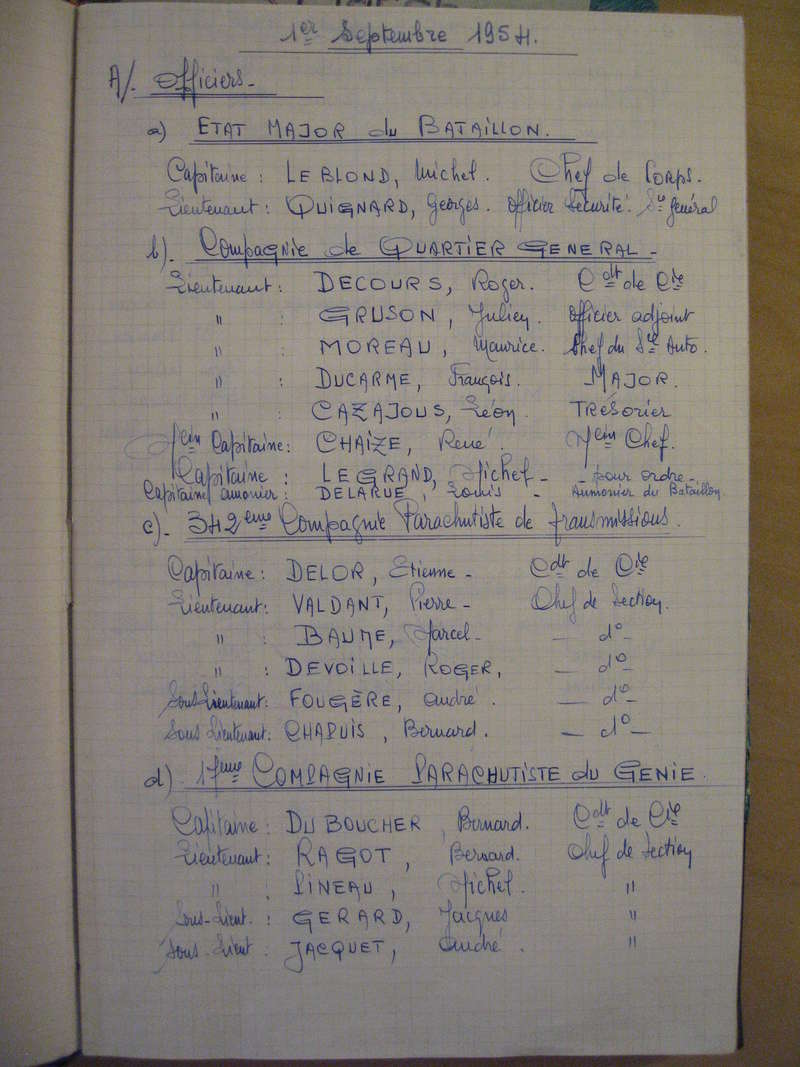 1er Septembre 1954.
A/. Officiers-
a) ETAT MAJOR du BATAILLON.
Capitaine : LEBLOND, Michel. Chef de Corps.
Lieutenant : QUIGNARD, Georges. Officier Sécurité. Sce Général
b)- Compagnie de QUARTIER GENERAL-
Lieutenant : DECOURS, Roger. Cdt de Cie
" : GRUSON, Julien. Officier adjoint
" : MOREAU, Maurice. Chef du Sce Auto.
" : DUCARME, François. MAJOR.
" : CAZAJOUS, Léon. TRESORIER
Mcin Capitaine : CHAIZE, René. Mcin Chef.
Capitaine : LEGRAND, Michel- -pour ordre-
Capitaine aumonier : DELARUE, Louis - Aumonier du Bataillon
c)- 342eme Compagnie Parachutiste de Transmissions.
Capitaine : DELOR, Etienne- Cdt de Cie
Lieutenant : VALDANT, Pierre- Chef de Section.
" : BAUME, Marcel- - d°-
" : DEVOILLE, ROGER, - d°-
Sous Lieutenant : FOUGÈRE, André. - d°-
Sous Lieutenant : CHAPUIS, Bernard. - d°-
d) 17eme COMPAGNIE PARACHUTISTE du GENIE.
Capitaine : DU BOUCHER, Bernard. Cdt de Cie
Lieutenant : RAGOT, Bernard. Chef de Section
" : PINEAU, Michel. "
Sous-Lieut. : GERARD, Jacques "
Sous-Lieut : JACQUET, André. "